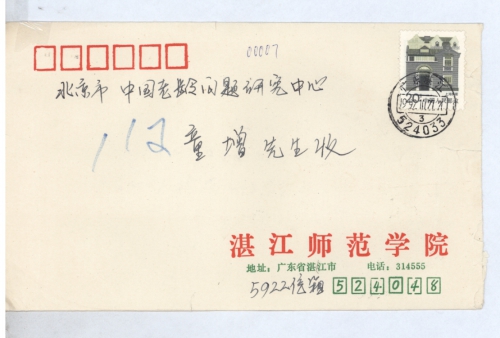 00007
北京市 中国老龄问题研究中心
112
童增 先生收
20
1992.11.27.21
3
524033
湛江师范学院
地址：广东省湛江市 电话：314555
5922信箱 524048